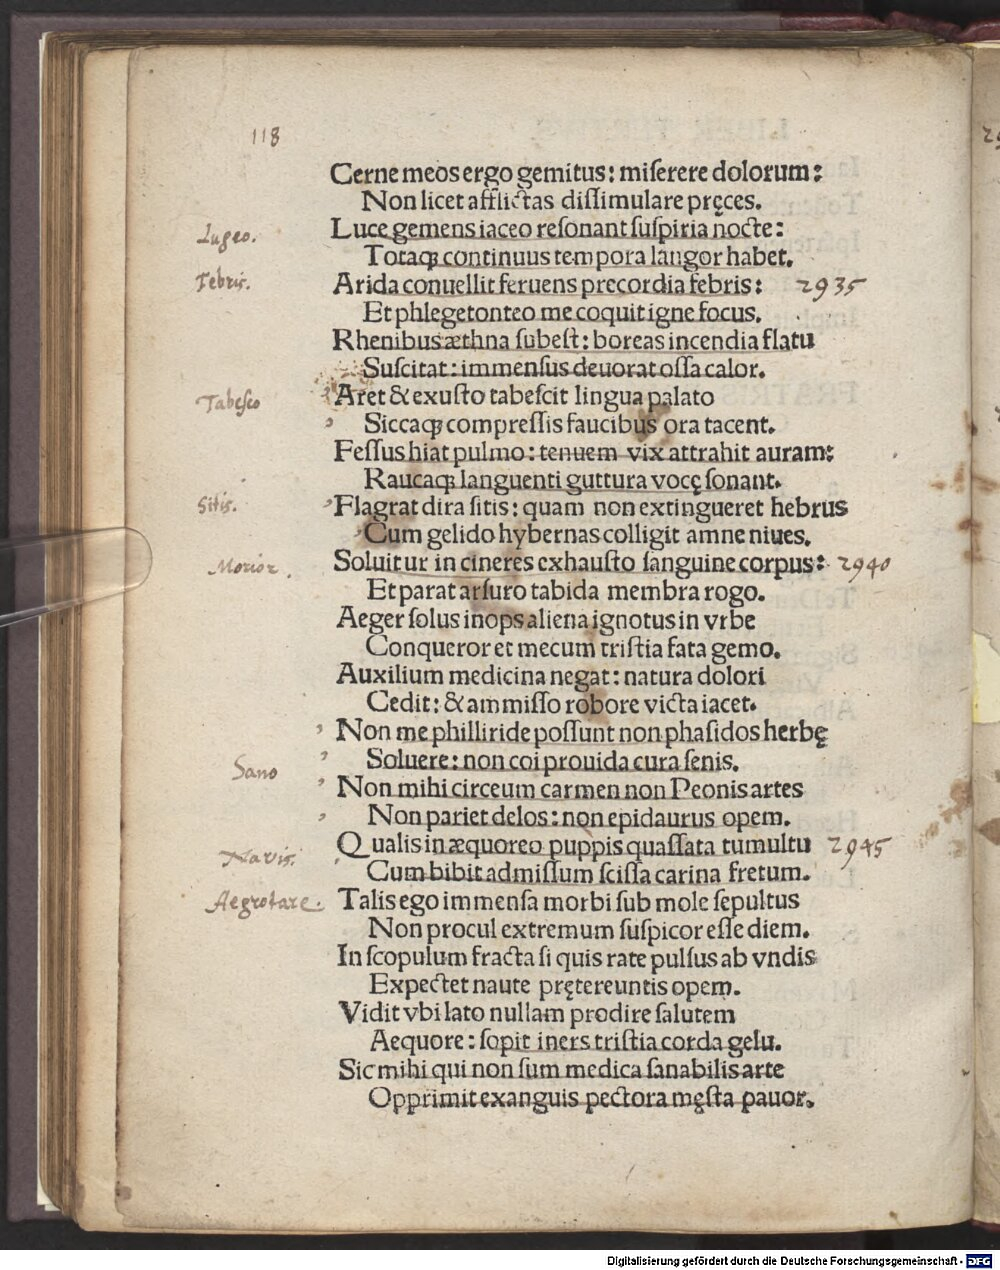 118
Cerne meos ergo gemitus: miserere dolorum:
Non licet afflictas dissimulare pręces.
Lugeo. Luce gemens iaceo resonant suspiria nocte:
Totaqꝫ continuus tempora langor habet.
Febris. Arida conuellit feruens precordia febris: 2935
Et phlegetonteo me coquit igne focus.
Rhenibus æthna subest: boreas incendia flatu
Suscitat: immensus deuorat ossa calor.
Tabesco Aret & exusto tabescit lingua palato
Siccaqꝫ compressis faucibus ora tacent.
Fessus hiat pulmo: tenuem vix attrahit auram:
Raucaqꝫ languenti guttura vocę sonant.
Sitis. Flagrat dira sitis: quam non extingueret hebrus
Cum gelido hybernas colligit amne niues.
Morior. Soluitur in cineres exhausto sanguine corpus: 2940
Et parat arsuro tabida membra rogo.
Aeger solus inops aliena ignotus in vrbe
Conqueror et mecum tristia fata gemo.
Auxilium medicina negat: natura dolori
Cedit: & ammisso robore victa iacet.
Non me philliride possunt non phasidos herbę
Soluere: non coi prouida cura senis.
Sano Non mihi circeum carmen non Peonis artes
Non pariet delos: non epidaurus opem.
Navis. Qualis in æquoreo puppis quassata tumultu 2945
Cum bibit admissum scissa carina fretum.
Aegrotare. Talis ego immensa morbi sub mole sepultus
Non procul extremum suspicor esse diem.
In scopulum fracta si quis rate pulsus ab vndis
Expectet naute prętereuntis opem.
Vidit vbi lato nullam prodire salutem
Aequore: sopit iners tristia corda gelu.
Sic mihi qui non sum medica sanabilis arte
Opprimit exanguis pectora męsta pauor.
Digitalisierung gefördert durch die Deutsche Forschungsgemeinschaft - DFG